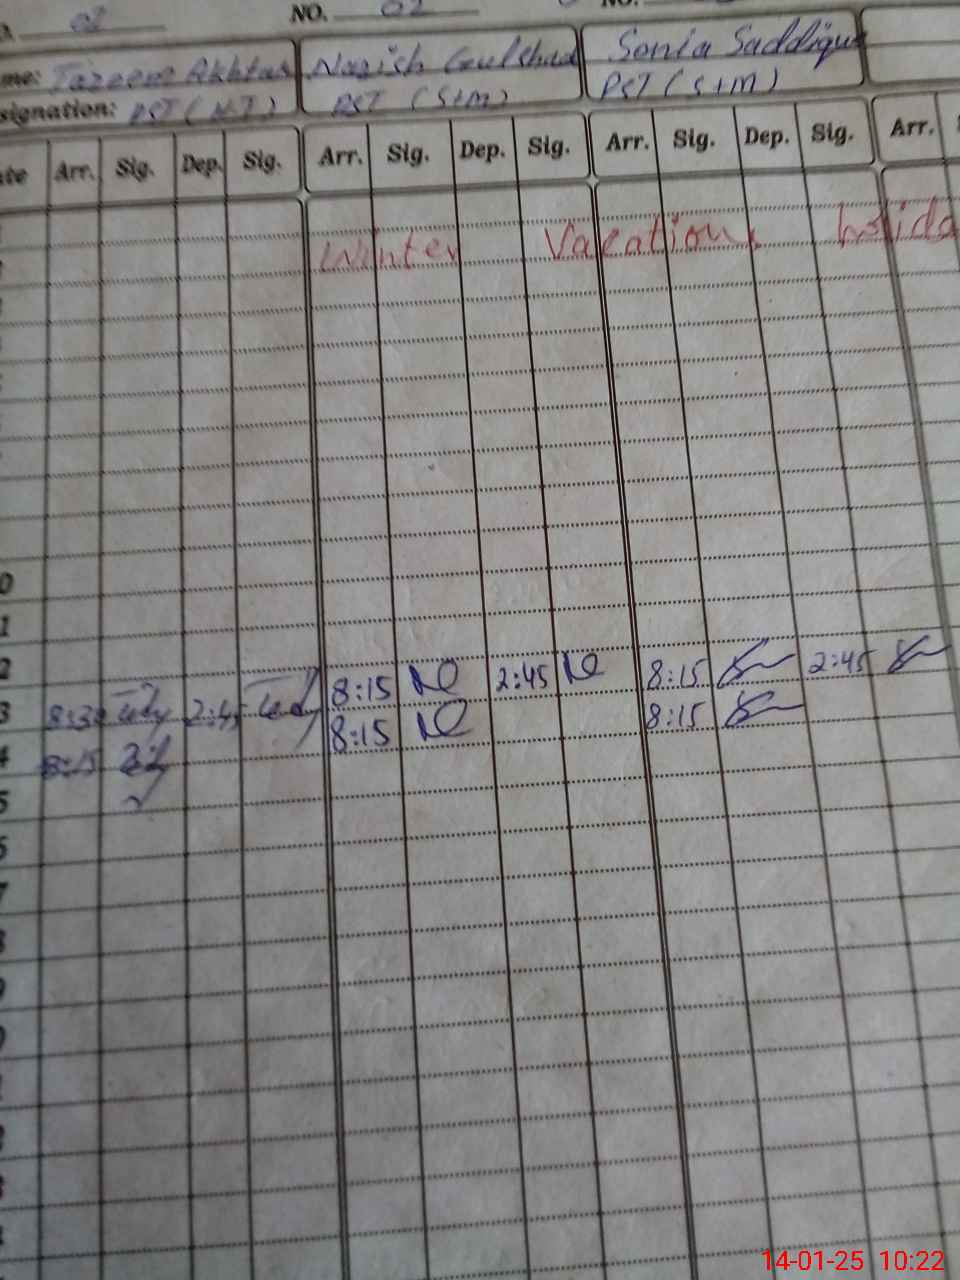 NO. 02 NO.
me: Tazeem Akhtar Nazish Gulshad Sonia Saddique
signation: PST (N.T) PST (S+M) PST (S+M)
te Arr. Sig. Dep. Sig. Arr. Sig. Dep. Sig. Arr. Sig. Dep. Sig. Arr.
Winter Vacation
0
1
2
3 8:30 2:45 8:15 2:45 8:15 2:45
4 8:15 8:15 8:15
5
14-01-25 10:22